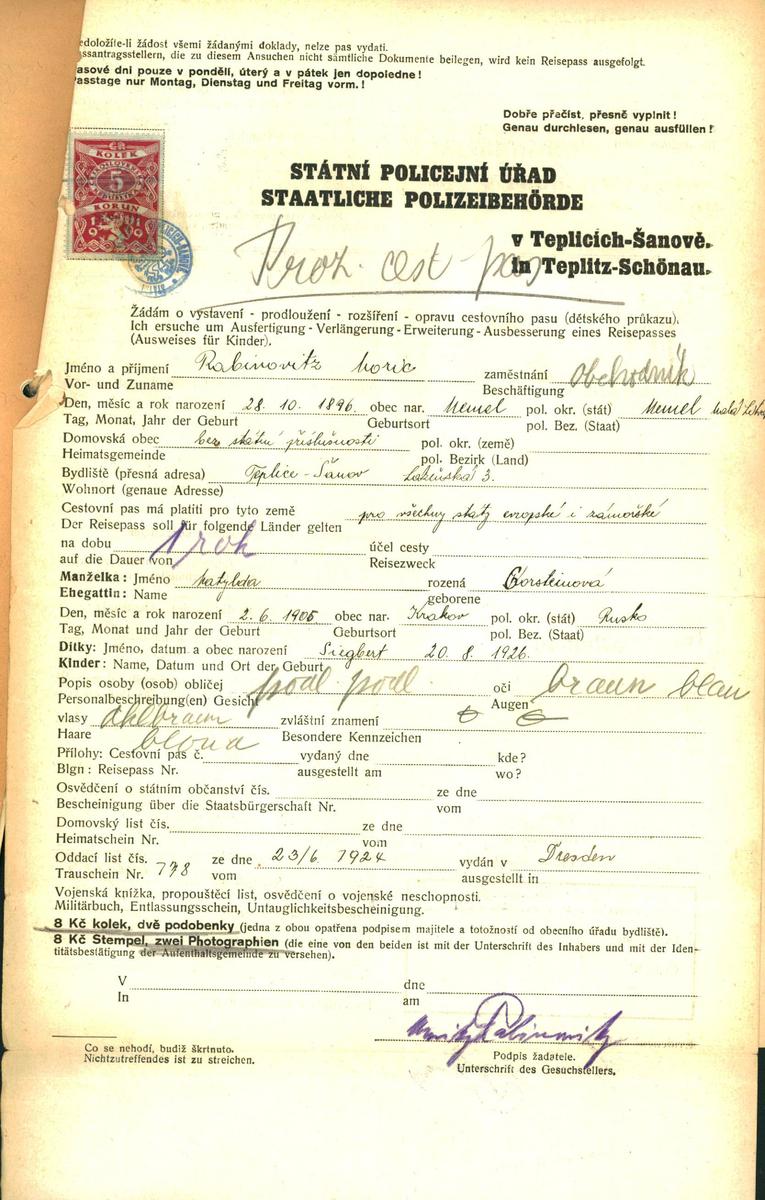 edoložíte-li žádost všemi žádanými doklady, nelze pas vydati.
ssantragsstellern, die zu diesem Ansuchen nicht sämtliche Dokumente beilegen, wird kein Reisepass ausgefolgt.
asové dni pouze v pondělí, úterý a v pátek jen dopoledne!
asstage nur Montag, Dienstag und Freitag vorm.!
Dobře přačíst, přesně vyplnit!
Genau durchlesen, genau ausfüllen!
KOLEK
5
KORUN
STÁTNÍ POLICEJNÍ ÚŘAD
STAATLICHE POLIZEIBEHÖRDE
v Teplicích-Šanově.
Proz. cest pas
in Teplitz-Schönau.
Žádám o vystavení - prodloužení - rozšíření - opravu cestovního pasu (dětského průkazu).
Ich ersuche um Ausfertigung - Verlängerung - Erweiterung - Ausbesserung eines Reisepasses
(Ausweises für Kinder).
Jméno a příjmení Rabinovitz Moric zaměstnání obchodník
Vor- und Zuname Beschäftigung
Den, měsíc a rok narození 28. 10. 1896. obec nar. Memel pol. okr. (stát) Memel
Tag, Monat, Jahr der Geburt Geburtsort pol. Bez. (Staat)
Domovská obec bez státní příslušnosti pol. okr. (země)
Heimatsgemeinde pol. Bezirk (Land)
Bydliště (přesná adresa) Teplice-Šanov 3.
Wohnort (genaue Adresse)
Cestovní pas má platiti pro tyto země pro všechny státy evropské i zámořské
Der Reisepass soll für folgende Länder gelten
na dobu 1 rok účel cesty
auf die Dauer von Reisezweck
Manželka: Jméno Matylda rozená Borsteinová
Ehegattin: Name geborene
Den, měsíc a rok narození 2. 6. 1905 obec nar. Krakov pol. okr. (stát) Rusko
Tag, Monat und Jahr der Geburt Geburtsort pol. Bez. (Staat)
Dítky: Jméno, datum a obec narození Siegbert 20. 8. 1926.
Kinder: Name, Datum und Ort der Geburt
Popis osoby (osob) obličej podl. podl. oči braun blau
Personalbeschreibung(en) Gesicht Augen
vlasy dklbraun zvláštní znamení
Haare blond Besondere Kennzeichen
Přílohy: Cestovní pas č. vydaný dne kde?
Blgn: Reisepass Nr. ausgestellt am wo?
Osvědčení o státním občanství čís. ze dne
Bescheinigung über die Staatsbürgerschaft Nr. vom
Domovský list čís. ze dne
Heimatschein Nr. vom
Oddací list čís. 778 ze dne 23/6. 1924 vydán v Dresden
Trauschein Nr. vom ausgestellt in
Vojenská knížka, propouštěcí list, osvědčení o vojenské neschopnosti.
Militärbuch, Entlassungsschein, Untauglichkeitsbescheinigung.
8 Kč kolek, dvě podobenky (jedna z obou opatřena podpisem majitele a totožností od obecního úřadu bydliště).
8 Kč Stempel, zwei Photographien (die eine von den beiden ist mit der Unterschrift des Inhabers und mit der Iden-
titätsbestätigung der Aufenthaltsgemeinde zu versehen).
V dne
In am
Moritz Rabinowitz
Co se nehodí, budiž škrtnuto.
Nichtzutreffendes ist zu streichen.
Podpis žadatele.
Unterschrift des Gesuchstellers.